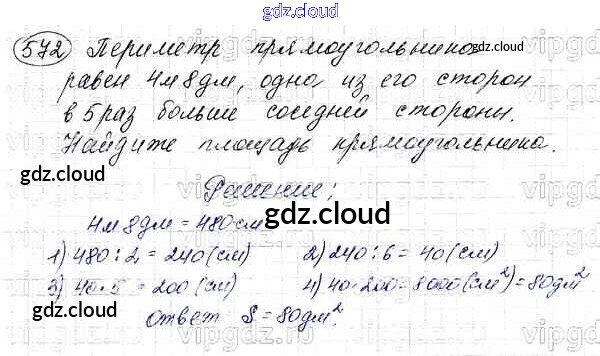 gdz.cloud
572 Периметр прямоугольника
равен 4м 8дм, одна из его сторон
в 5 раз больше соседней стороны.
Найдите площадь прямоугольника.
gdz.cloud
Решение:
gdz.cloud
4м 8дм = 480 см
1) 480 : 2 = 240 (см) 2) 240 : 6 = 40 (см)
3) 40 · 5 = 200 (см) 4) 40 · 200 = 8000 (см²) = 80дм²
gdz.cloud
gdz.cloud
ответ S = 80дм².